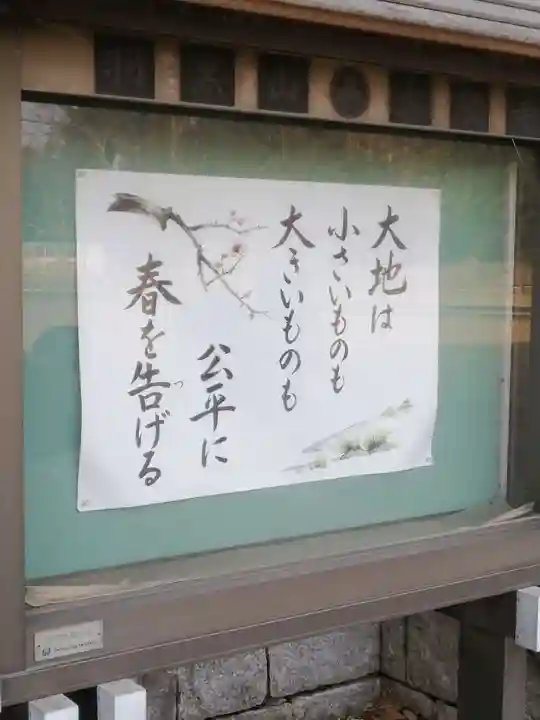 大地は
小さいものも
大きいものも
公平に
春を告げる
つ